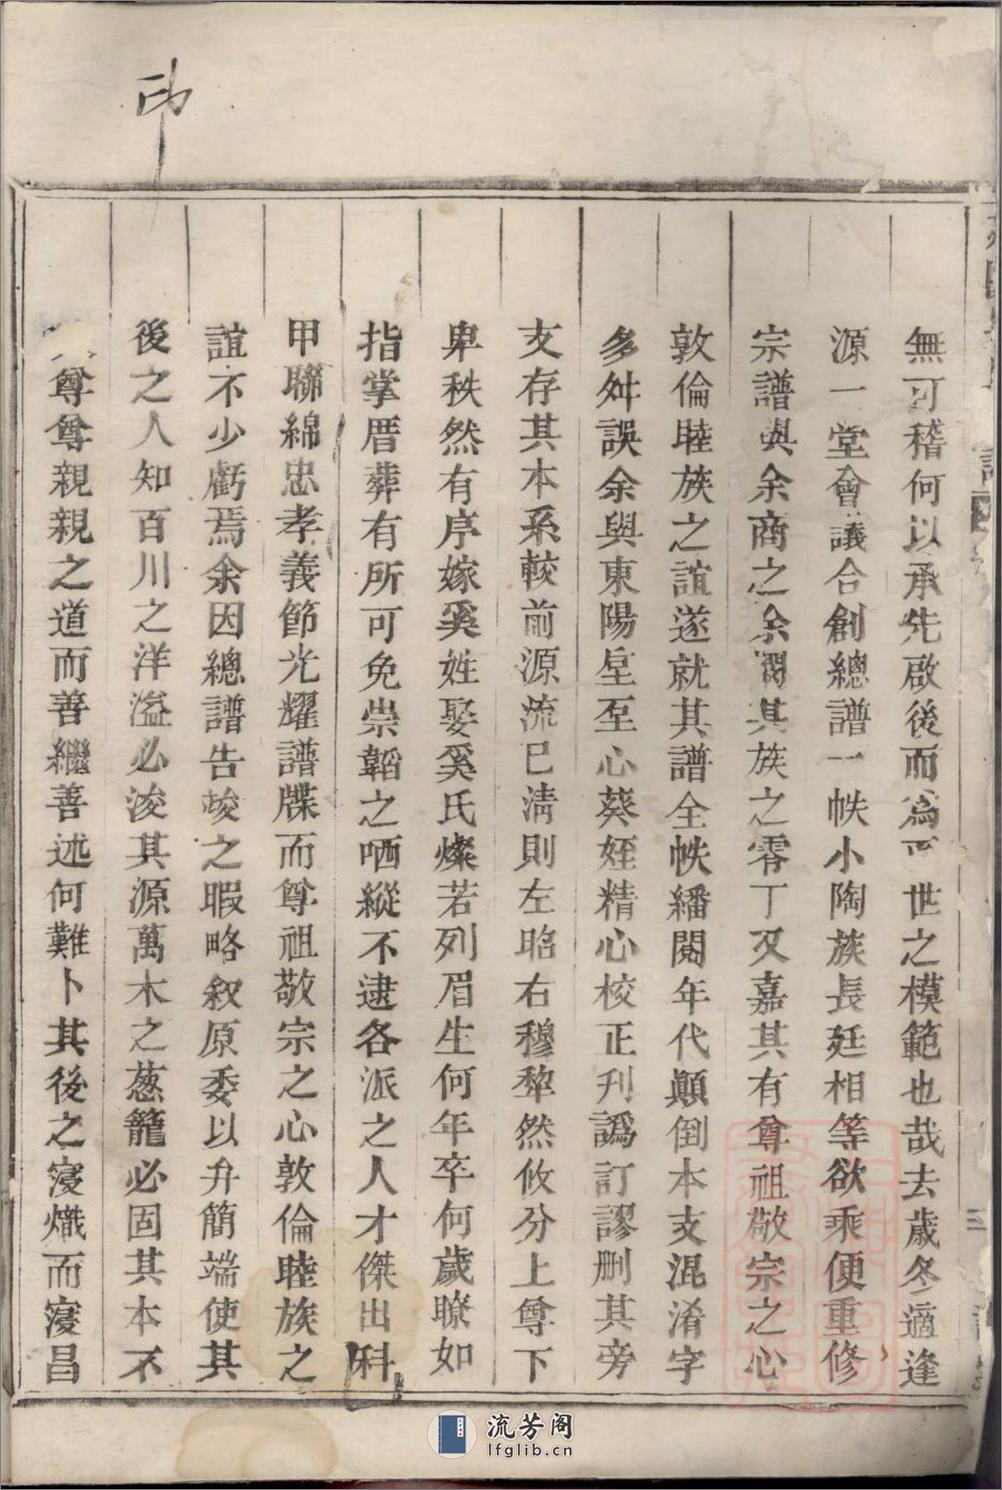 卬
無可稽何以承先啟後而爲世之模範也哉去歲冬適逢
源一堂會議合創總譜一帙小陶族長廷相等欲乘便重修
宗譜與余商之余憫其族之零丁又嘉其有尊祖敬宗之心
敦倫睦族之誼遂就其譜全帙繙閱年代顛倒本支混淆字
多舛誤余與東陽皇至心葵姪精心校正刋譌訂謬刪其旁
支存其本系較前源流已淸則左昭右穆犂然攸分上尊下
卑秩然有序嫁奚姓娶奚氏燦若列眉生何年卒何歲瞭如
指掌厝葬有所可免崇韜之哂縱不逮各派之人才傑出科
甲聯綿忠孝義節光耀譜牒而尊祖敬宗之心敦倫睦族之
誼不少虧焉余因總譜告竣之暇略叙原委以弁簡端使其
後之人知百川之洋溢必浚其源萬木之葱籠必固其本不
尊尊親親之道而善繼善述何難卜其後之寖熾而寖昌
流芳阁
lfglib.cn